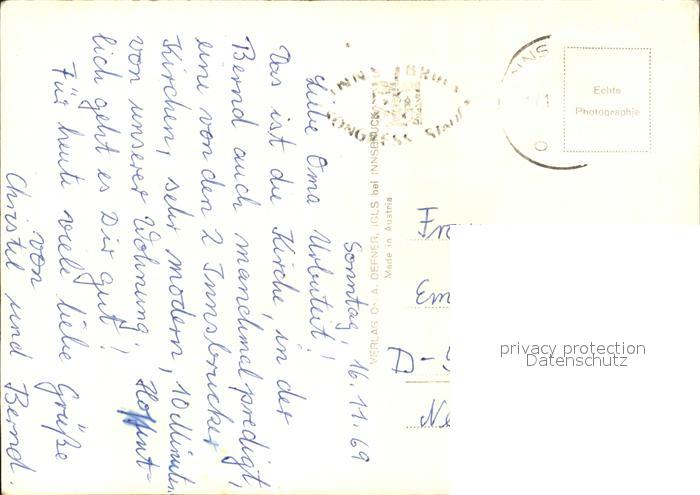 Sonntag, 16.11.69
Liebe Oma
Das ist die Kirche, in der
Bernd auch manchmal predigt,
eine von den 2 Innsbrucker
Kirchen, sehr modern, 10 Minuten
von unserer Wohnung. Hoffent-
lich geht es Dir gut!
Für heute viele liebe Grüße
von
Christel und Bernd.
VERLAG Dr. A. DEFNER, IGLS bei INNSBRUCK
Made in Austria
INNSBRUCK
KONGRESS STADT
INNS
Echte
Photographie
Fra
Em
D-
Ne
privacy protection
Datenschutz